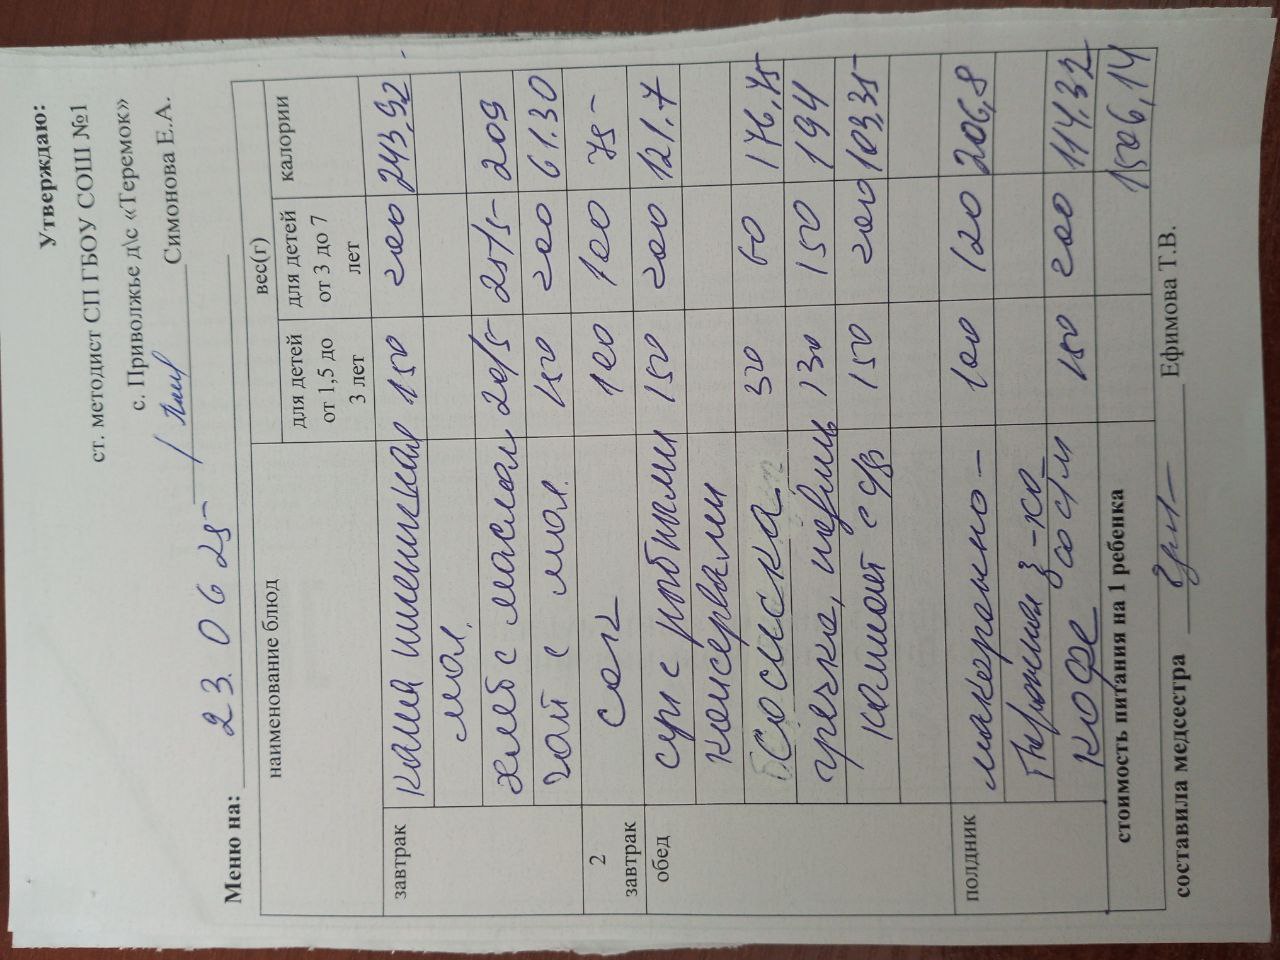 Утверждаю:
ст. методист СП ГБОУ СОШ №1
с. Приволжье д\с «Теремок»
Симонова Е.А.
Меню на: 23.06 25
наименование блюд вес(г) калории
для детей от 1,5 до 3 лет для детей от 3 до 7 лет
завтрак каша пшеничная 150 200 243,92
мол.
хлеб с маслом 20/5 25/5 209
чай с мол. 150 200 61.30
2 завтрак сок 100 100 75-
обед суп с рыбными 150 200 121.7
консервами
сосиска 50 60 176,75
гречка, 130 150 194
компот с с/в 150 200 103,35
полдник макаронно- 100 120 206,8
з-ка
кофе со сг/м 150 200 114,32
стоимость питания на 1 ребенка 1506,14
составила медсестра Ефимова Т.В.